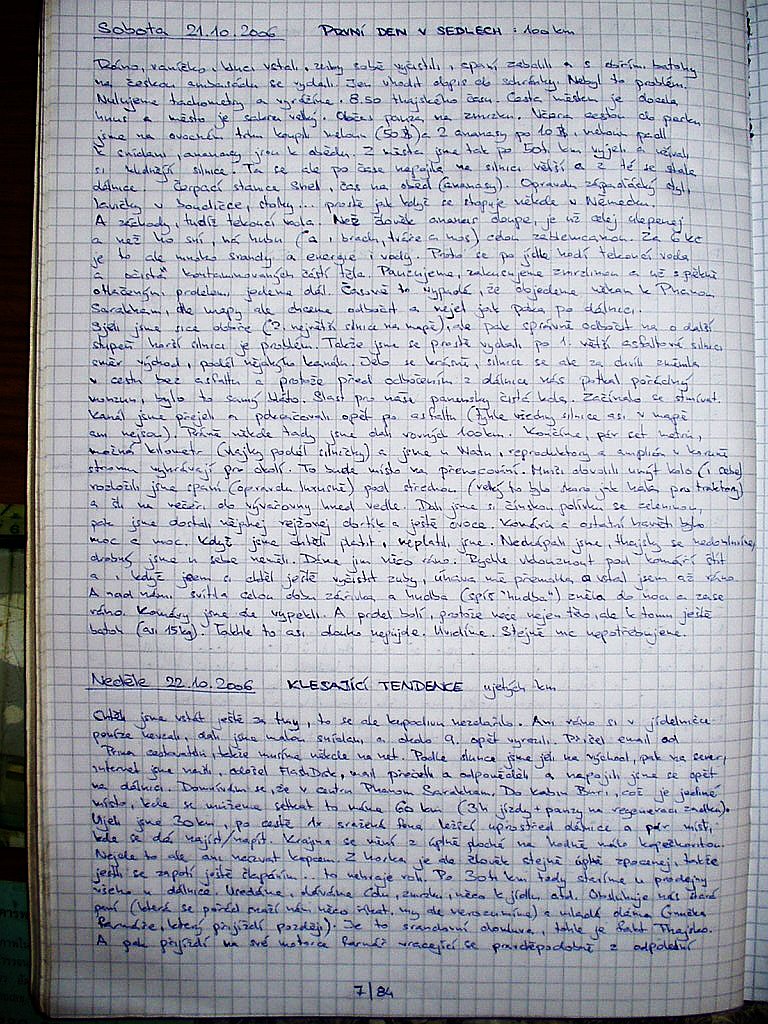 Sobota 21.10.2006 PRVNÍ DEN V SEDLECH : 100 km
Ráno, raníčko, kluci vstali, zuby sobě vyčistili, spaní zabalili a s obřími batohy
na českou ambasádu se vydali. Jen vhodit dopis do schránky. Nebyl to problém.
Nulujeme tachometry a vyrážíme. 8:50 thajského času. Cesta městem je docela
humus a město je sakra velký. Občas pauza na zmrzku. Včera cestou do parku
jsme na ovocném trhu koupili meloun (50 ฿) a 2 ananasy po 10 ฿, meloun padl
k snídani, ananasy jsou k obědu. Z města jsme tak po 50ti km vyjeli a užívali
si klidnější silnice. Ta se ale po čase napojila na silnici větší a z té se stala
dálnice. Čerpací stanice Shell, čas na oběd (ananasy). Opravdu západácký styl,
lavičky v boudičce, stolky... prostě jak když se stopuje někde v Německu.
A záchody, tudíž tekoucí voda. Než člověk ananas oloupe, je už celej ulepenej
a než ho sní, má hubu (a i bradu, tváře a nos) celou zablemcanou. Za 6 kč
je to ale mnoho srandy a energie i vody. Proto se po jídle hodí tekoucí voda
a očista kontaminovaných částí těla. Pauzujeme, zakusujeme zmrzlinou a už s pěkně
otlačenými prdelemi jedeme dál. Časově to vypadá, že dojedeme někam k Phanom
Sarakham, dle mapy ale chceme odbočit a nejet jak páka po dálnici.
Sjeli jsme sice dobře (2. největší silnice na mapě), ale pak správně odbočit na o další
stupeň horší silnici je problém. Takže jsme se prostě vydali po 1. větší asfaltové silnici
směr východ, podél nějakýho kanálu. Jelo se krásně, silnice se ale za chvíli změnila
v cestu bez asfaltu a protože před odbočením z dálnice nás potkal pořádný
monzun, bylo to samý bláto. Slast pro naše panensky čistá kola. Začínalo se stmívat.
Kanál jsme přejeli a pokračovali opět po asfaltu (tyhle všechny silnice asi v mapě
ani nejsou). Právě někde tady jsme dali rovných 100 km. Končíme, pár set metrů,
možná kilometr (vlajky podél silničky) a jsme u Watu, reproduktory a amplión v koruně
stromu vyhrávají pro okolí. To bude místo na přenocování. Mniši dovolili umýt kolo (i sebe)
rozložili jsme spaní (opravdu luxusně) pod střechou (velký to bylo skoro jak hala pro traktory)
a šli na večeři do vývařovny hned vedle. Dali jsme si čínskou polívku se zeleninou,
pak jsme dostali nějakej rejžovej dortík a ještě ovoce. Komárů a ostatní havěti bylo
moc a moc. Když jsme chtěli platit, neplatili jsme. Nechápali jsme, thajsky se nedomluvíme,
drobný jsme u sebe neměli. Dáme jim něco ráno. Rychle vklouznout pod komáří štít
a i když jsem si chtěl ještě vyčistit zuby, únava mě přemohla a vstal jsem až ráno.
A nad námi svítila celou dobu zářivka a hudba (spíš "hudba") zněla do noci a zase
ráno. Komáry jsme ale vypekli. A prdel bolí, protože nese nejen tělo, ale k tomu ještě
batoh (asi 15kg). Takhle to asi dlouho nepůjde. Uvidíme. Stejně nic nepotřebujeme.
Neděle 22.10.2006 KLESAJÍCÍ TENDENCE ujetých km
Chtěli jsme vstát ještě za tmy, to se ale kupodivu nezdařilo. Ani ráno si v jídelničce
peníze nevzali, dali jsme malou snídani a okolo 9. opět vyrazili. Přišel email od
Prima cestovatelů, takže musíme někde na net. Podle slunce jsme jeli na východ, pak na sever,
internet jsme našli, odešel FlashDisk, mail přečetli a odpověděli a napojili jsme se opět
na dálnici. Domníváme se, že v centru Phanom Sarakham. Do Kabin Buri, což je jediné
místo, kde se můžeme setkat to máme 60 km (3h jízdy + pauzy na regeneraci zadku).
Ujeli jsme 30 km, po cestě 1x sražená fena ležící uprostřed dálnice a pár míst,
kde se dá najíst/napít. Krajina se mění z úplně ploché na hodně málo kopečkovitou.
Nejde to ale ani nazvat kopcem. Z horka je ale člověk stejně úplně zpocenej, takže
jestli se zapotí ještě šlapáním... to nehraje roli. Po 30ti km tedy stavíme u prodejny
všeho u dálnice. Usedáme, dáváme colu, zmrzku, něco k jídlu atd. Obsluhuje nás stará
paní (která se pořád snaží nám něco říkat, my ale nerozumíme) a mladá dáma (vnučka
farmáře, který přijíždí později). Je to srandovní domluva, tohle je fakt Thajsko.
A pak přijíždí na své motorce farmář vracející se pravděpodobně z odpolední
7/84